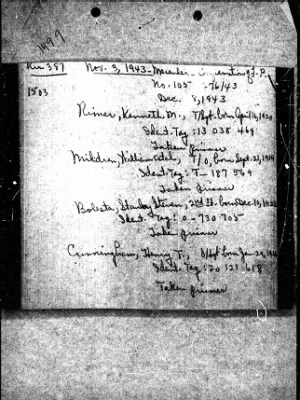 1499
Ku 387 Nov. 3, 1943 - of P.
1503 No. 105 /43
Dec. 8, 1943
Rimer, Kenneth M., T/Sgt. born April 16, 1920
Ident. Tag: 13 038 469
Taken prisoner
Mildren, William, F/O, born Sept. 21, 1919
Ident. Tag: T- 187 569
Taken prisoner
Stanley Steven, 2nd Lt. born Dec. 19,
Ident. Tag: 0-730 705
Taken prisoner
Cunningham, Henry T., S/Sgt. born Jan 29,
Ident. Tag: 20 121 618
Taken prisoner